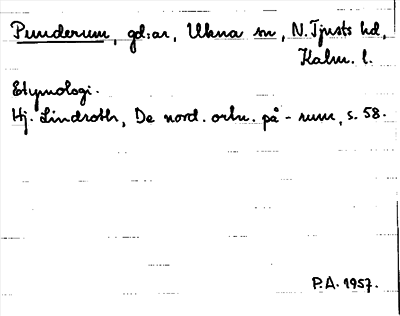 Punderum, gd:ar, Ukna sn, N. Tjusts hd,
Kalm. l.
Etymologi.
Hj. Lindroth, De nord. ortn. på - rum, s. 58.
P.A. 1957.